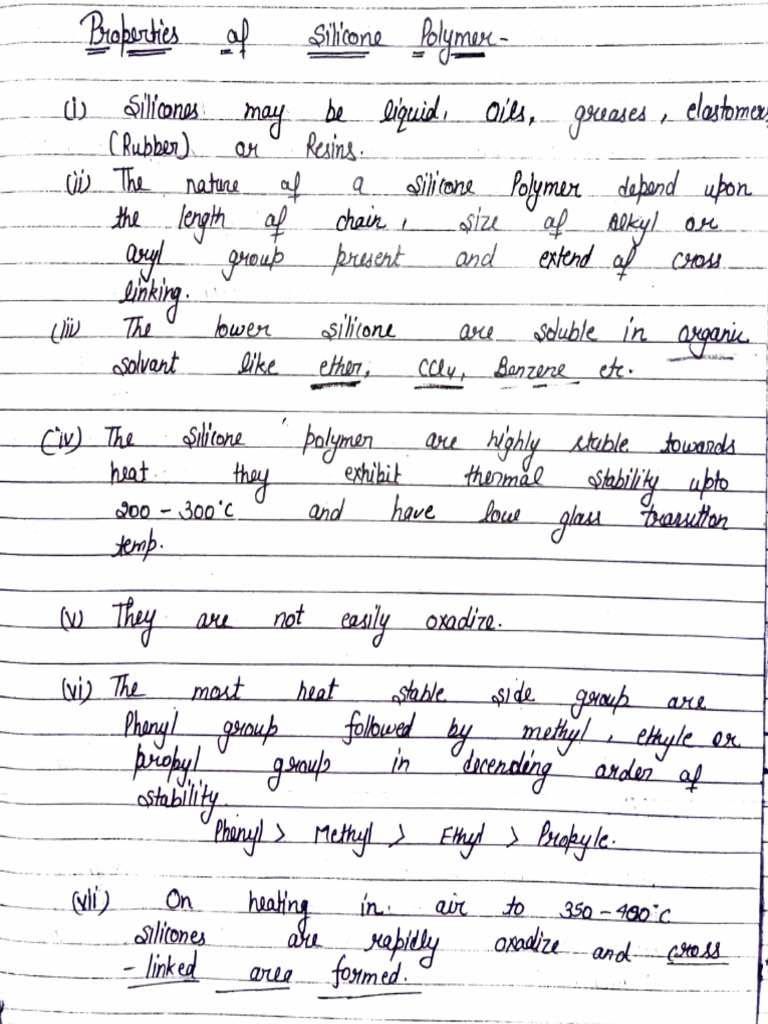 Properties of Silicone Polymer-
(i) Silicones may be liquid, oils, greases, elastomers
(Rubber) or Resins.
(ii) The nature of a silicone Polymer depend upon
the length of chain, size of Alkyl or
aryl group present and extend of cross
linking.
(iii) The lower silicone are soluble in organic
solvant like ether, CCl4, Banzene etc.
(iv) The silicone polymer are highly stable towards
heat. they exhibit thermal stability upto
200-300°C and have low glass transition
temp.
(v) They are not easily oxadize.
(vi) The most heat stable side group are
Phenyl group followed by methyl, ethyle or
propyl group in decending order of
stability.
Phenyl > Methyl > Ethyl > Propyle.
(vii) On heating in air to 350-400°C
silicones are rapidly oxadize and cross
-linked area formed.